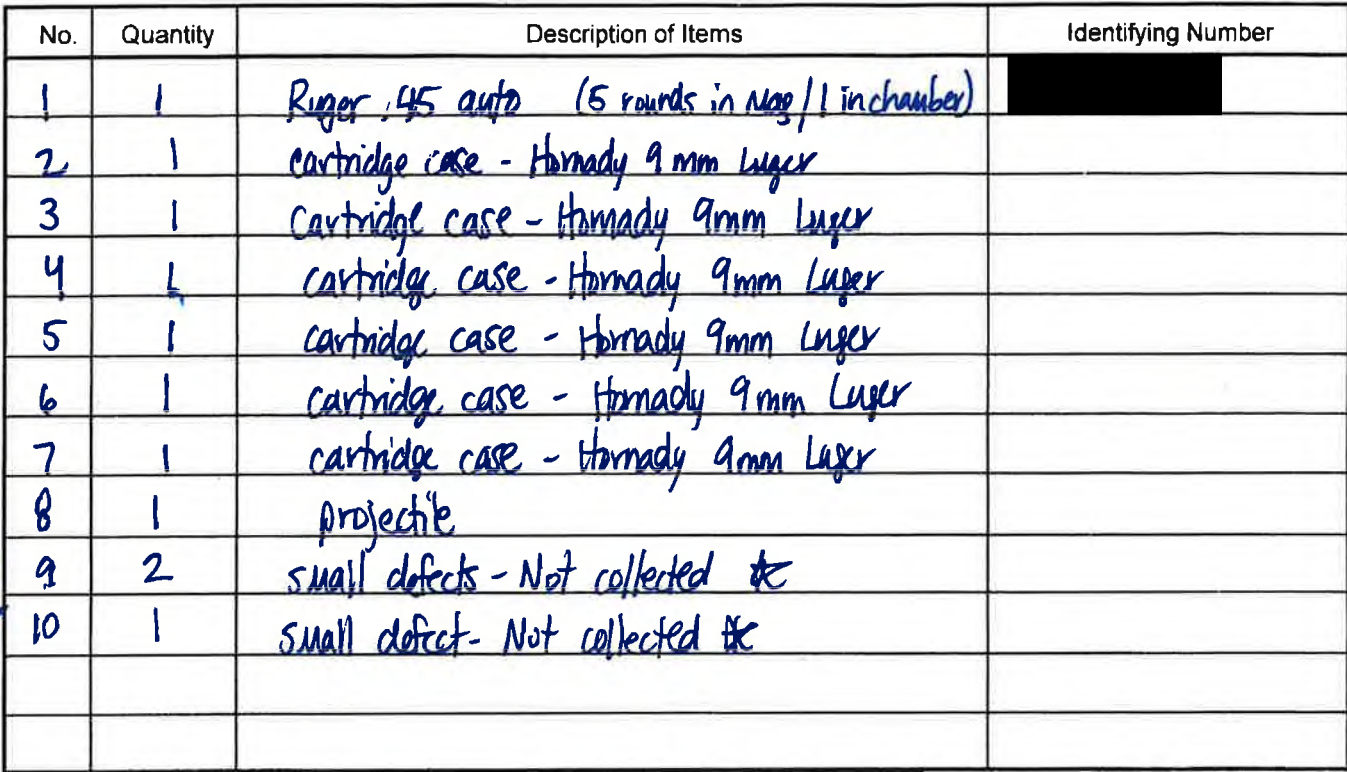 No. Quantity Description of Items Identifying Number
1 1 Ruger .45 auto (5 rounds in Mag/1 in chamber)
2 1 cartridge case - Hornady 9 mm Luger
3 1 Cartridge case - Hornady 9mm Luger
4 1 cartridge case - Hornady 9mm Luger
5 1 cartridge case - Hornady 9mm Luger
6 1 cartridge case - Hornady 9mm Luger
7 1 cartridge case - Hornady 9mm Luger
8 1 projectile
9 2 small defects - Not collected
10 1 small defect - Not collected